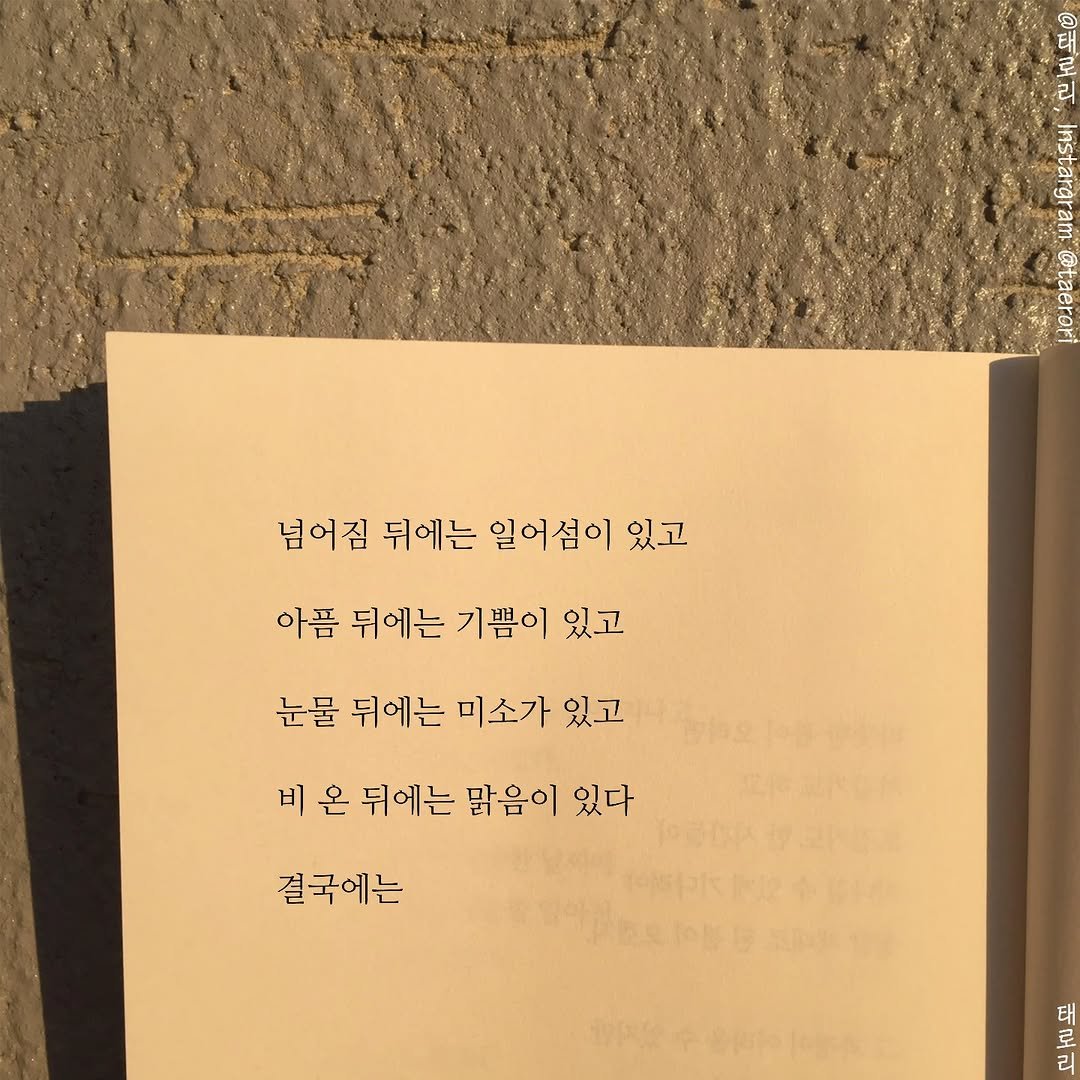 넘어짐 뒤에는 일어섬이 있고
아픔 뒤에는 기쁨이 있고
눈물 뒤에는 미소가 있고
비 온 뒤에는 맑음이 있다
결국에는
@태로리, Instargram @taerori
태로리